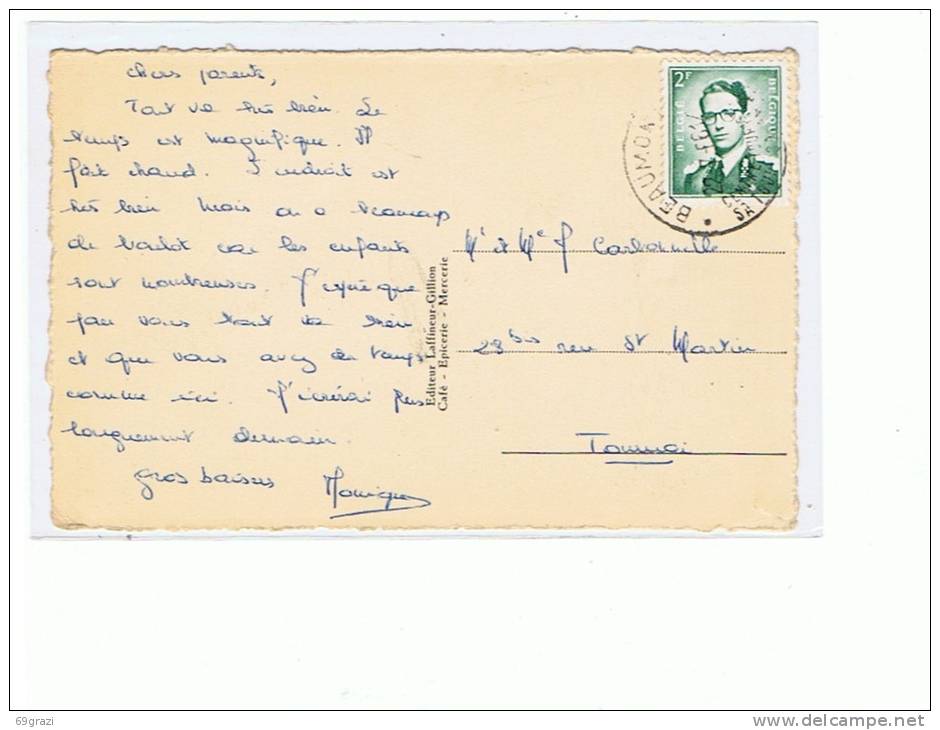 chers parents,
Tout va très bien. Le
temps est magnifique. Il
fait chaud. L'endroit est
très bien mais on a beaucoup
de boulot car les enfants
sont nombreuses. J'espère que
pour vous tout va bien
et que vous avez du temps
comme ici. J'écrirai plus
longuement demain.
gros baisers Monique
2F
BELGIE BELGIQUE
BEAUMO
Mr et Me J Carbonnelle
28 bis rue St Martin
Tournai
Editeur Laffineur-Gillion
Café - Epicerie - Mercerie
69grazi
delcampe.net